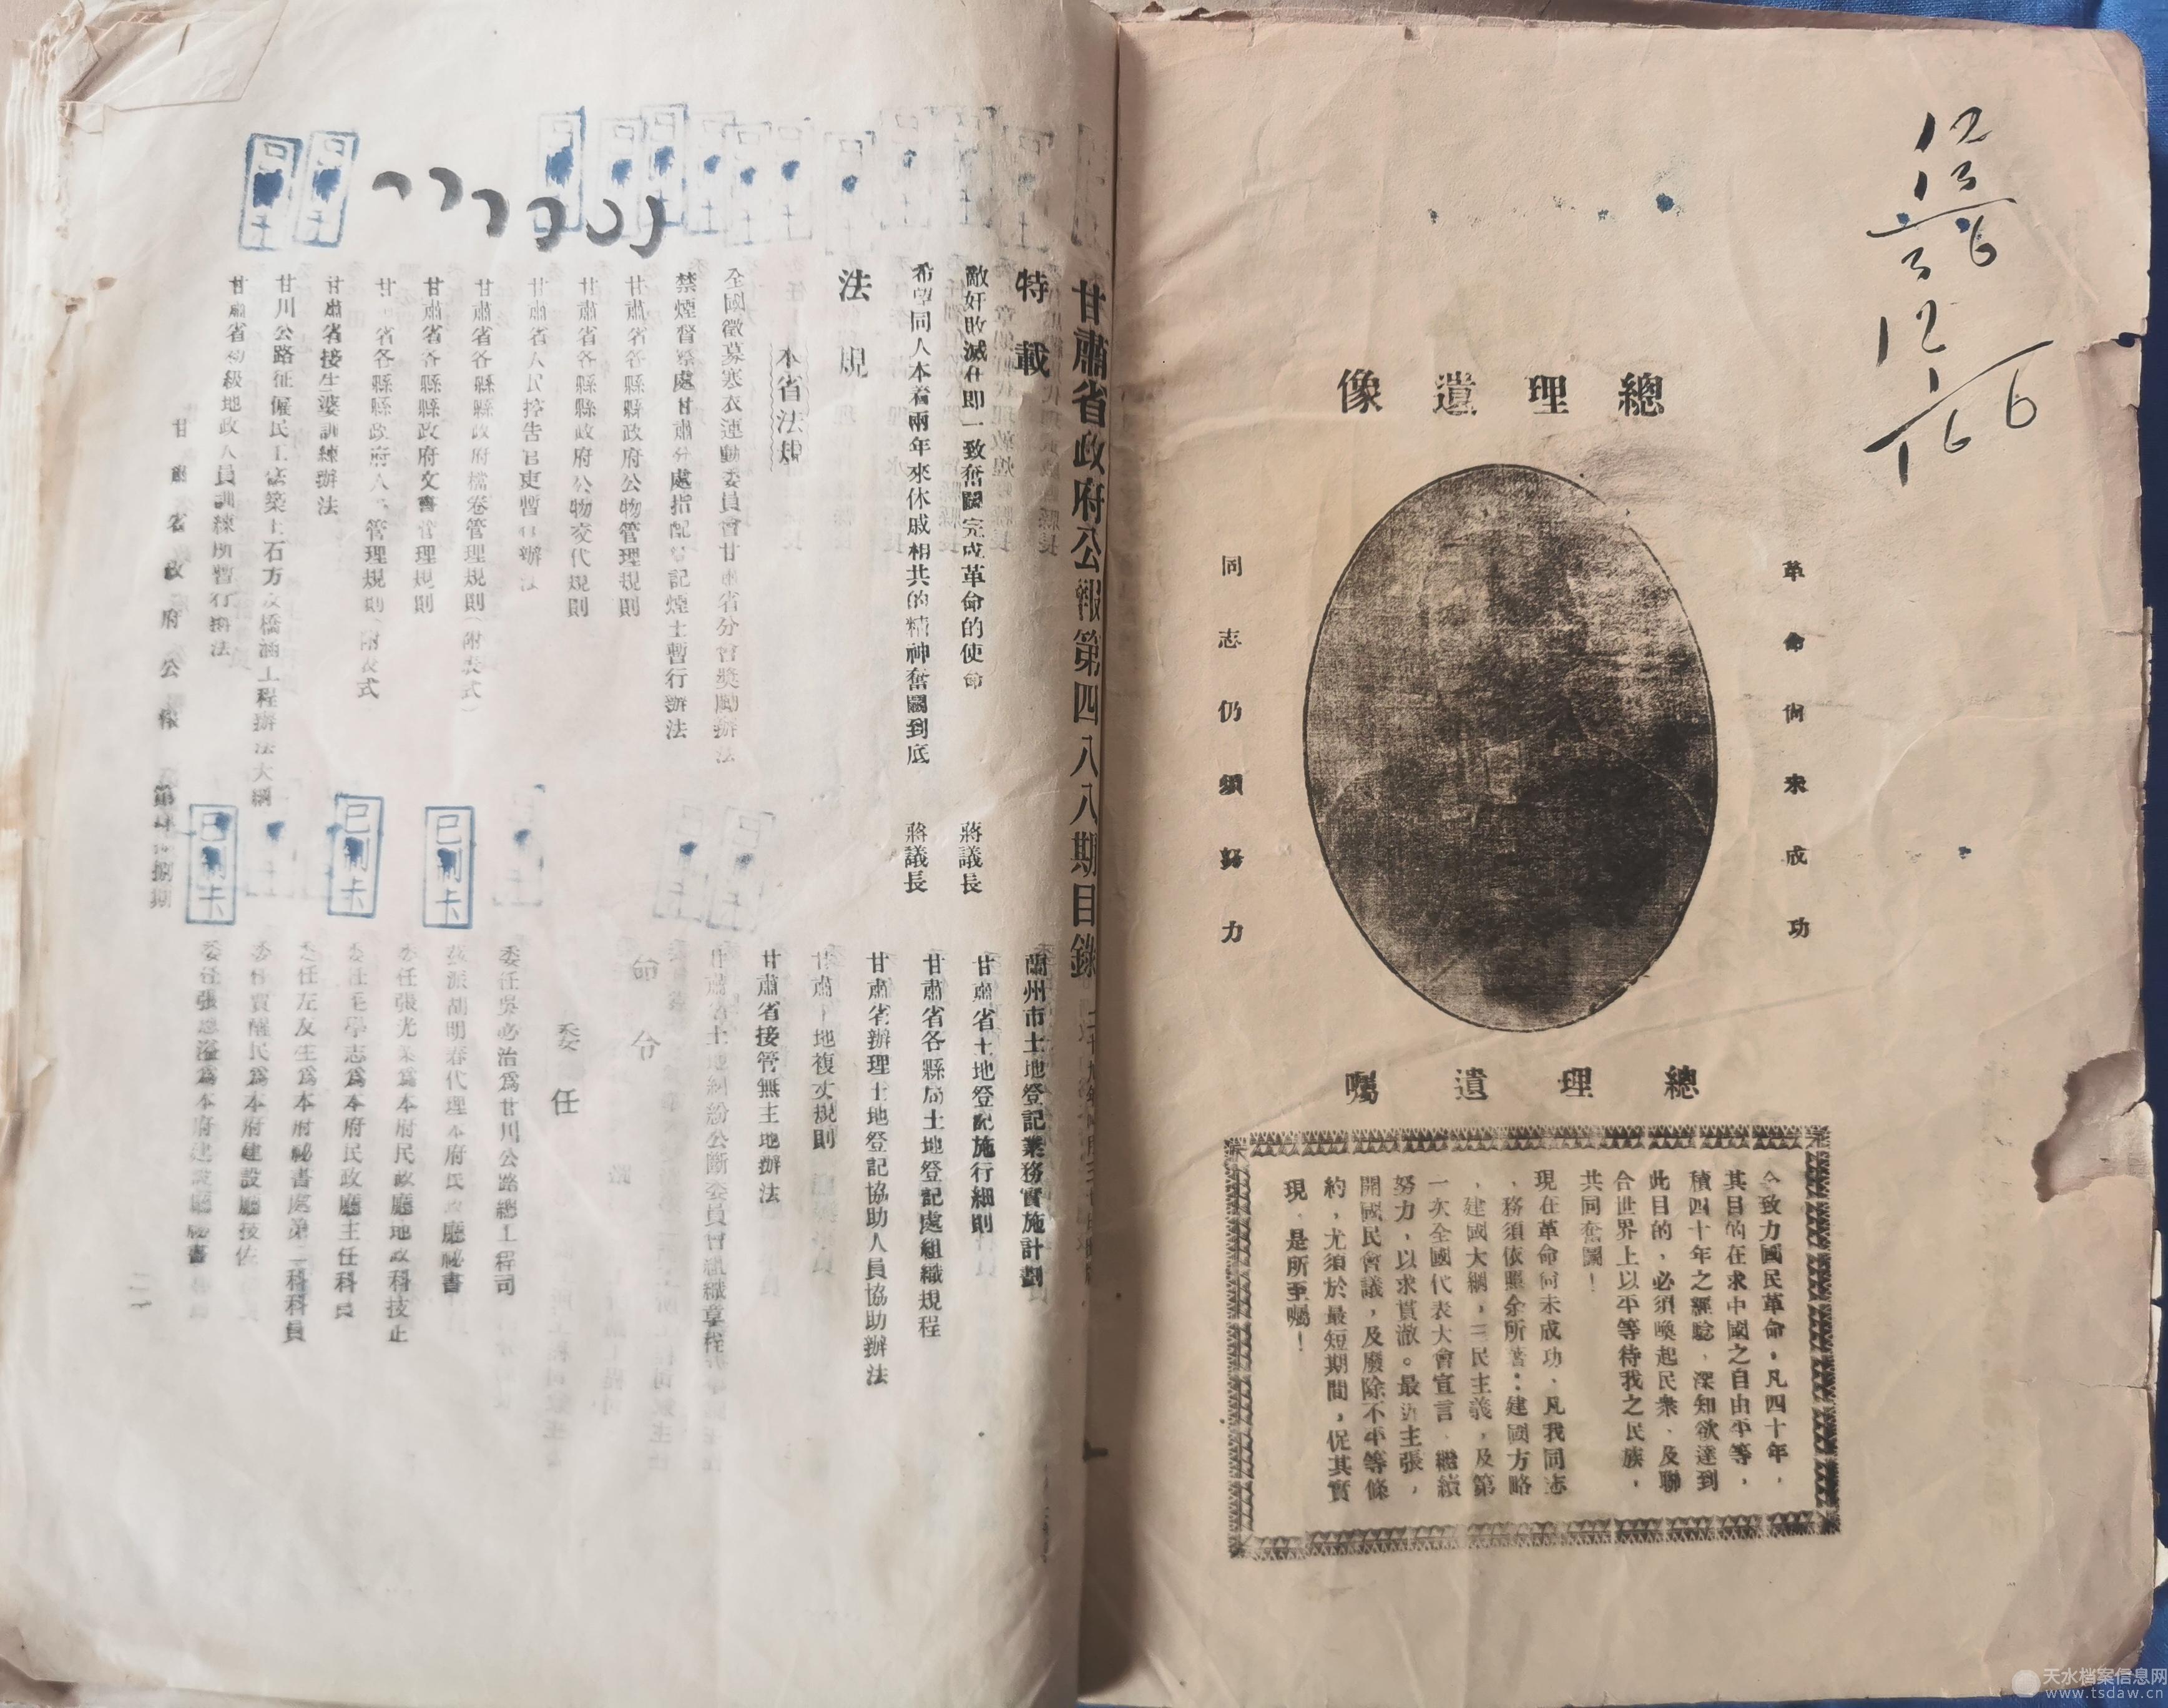 總理遺像
革命尚未成功
同志仍須努力
總理遺囑
致力國民革命，凡四十年，
其目的在求中國之自由平等，
積四十年之經驗，深知欲達到
此目的，必須喚起民衆，及聯
合世界上以平等待我之民族，
共同奮鬭！
現在革命尚未成功，凡我同志
，務須依照余所著：建國方略
，建國大綱，三民主義，及第
一次全國代表大會宣言，繼續
努力，以求貫澈。最近主張，
開國民會議，及廢除不平等條
約，尤須於最短期間，促其實
現，是所至囑！
12
13
36
12
166
甘肅省政府公報第四八八期目錄
特載
敵奸敗滅在即一致奮鬭完成革命的使命
蔣議長
希望同人本着兩年來休戚相共的精神奮鬭到底
蔣議長
法規
本省法規
全國徵募寒衣運動委員會甘肅省分會獎勵辦法
禁煙督察處甘肅分處指配登記煙土暫行辦法
甘肅省各縣縣政府公物管理規則
甘肅省各縣縣政府公物交代規則
甘肅省人民控告官吏暫行辦法
甘肅省各縣縣政府檔卷管理規則（附表式）
甘肅省各縣縣政府文書管理規則
甘肅省各縣縣政府人事管理規則（附表式
甘肅省接生婆訓練辦法
甘川公路征僱民工舖築土石方及橋涵工程辦法大綱
甘肅省初級地政人員訓練所暫行辦法
蘭州市土地登記業務實施計劃
甘肅省土地登記施行細則
甘肅省各縣局土地登記處組織規程
甘肅省辦理土地登記協助人員協助辦法
甘肅土地複丈規則
甘肅省接管無主地辦法
甘肅省土地糾紛公斷委員會組織章程
命令
委任
委任吳必治爲甘川公路總工程司
茲派胡明春代理本府民政廳祕書
委任張光業爲本府民政廳地政科技正
委任毛學志爲本府民政廳主任科員
委任左友生爲本府祕書處第二科科員
委任賈醒民爲本府建設廳技佐
委任張懋溢爲本府建設廳祕書
甘肅省政府公報
第肆捌捌期
已制卡
已制卡
已制卡
天水档案信息网
www.tsdaw.cn